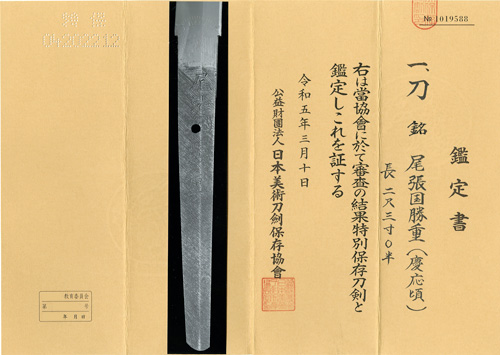 № 1019588
鑑定書
一、刀 銘 尾張国勝重(慶応頃)
長 二尺三寸〇半
右は當協會に於て審査の結果特別保存刀剣と
鑑定しこれを証する
令和五年三月十日
公益財團法人 日本美術刀剣保存協會
教育委員会
第 号
年 月 日